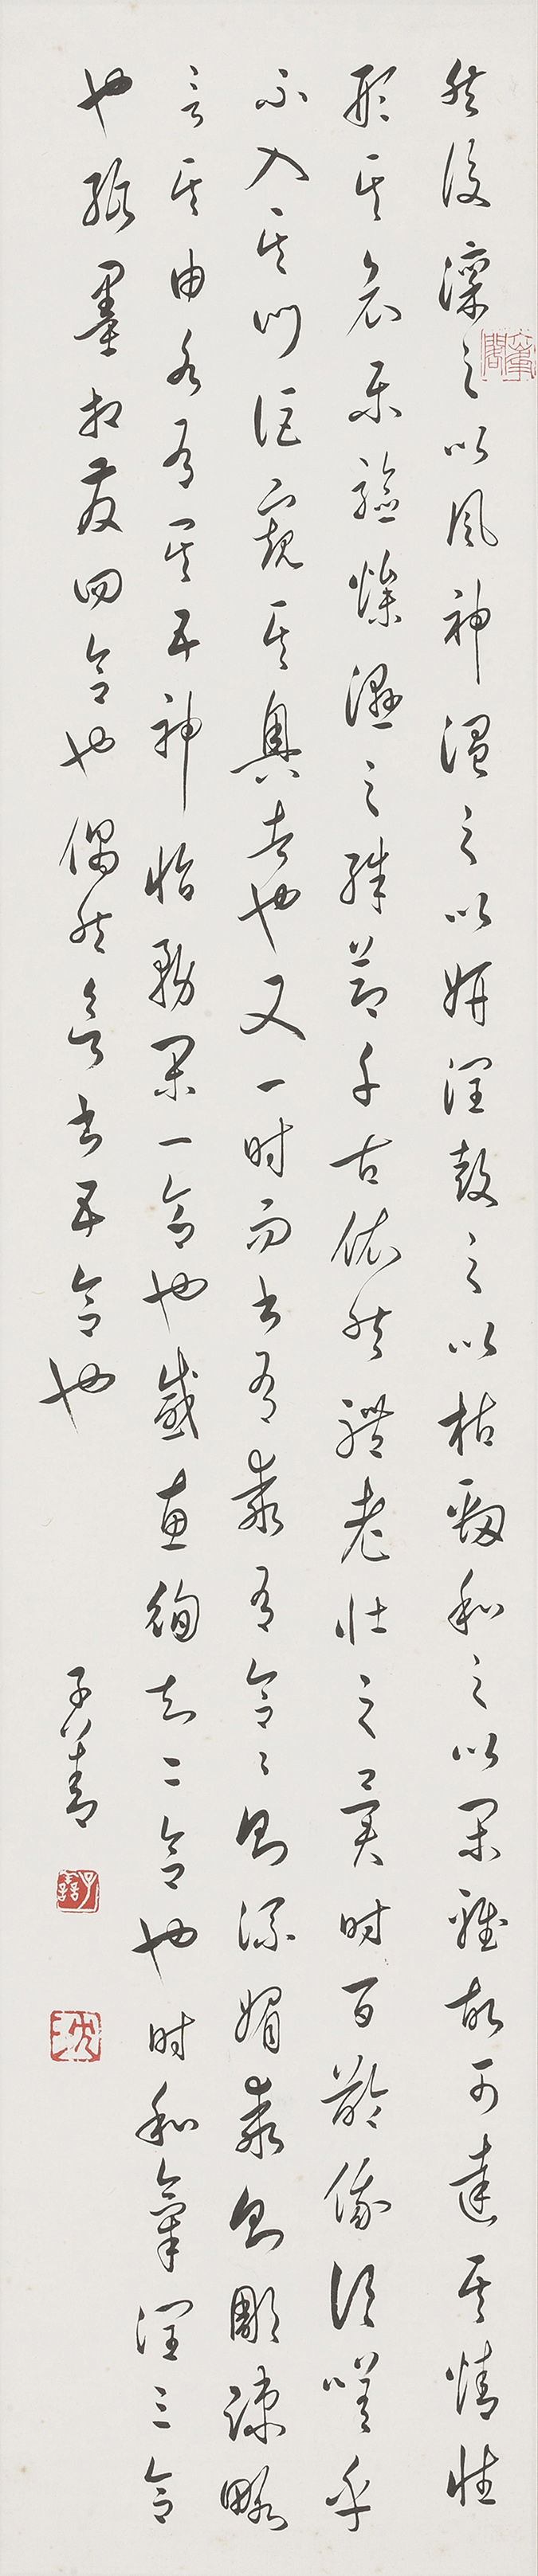 然後凜之以風神溫之以妍潤鼓之以枯勁和之以閑雅故可達其情性
形其哀樂驗燥濕之殊節千古依然體老壯之異時百齡俄頃嗟乎
不入其門詎窺其奧者也又一時而書有乖有合〻則流媚乖則彫疎略
言其由各有其五神怡務閑一合也感惠徇知二合也時和氣潤三合
也紙墨相發四合也偶然欲書五合也
子善
子善
沈